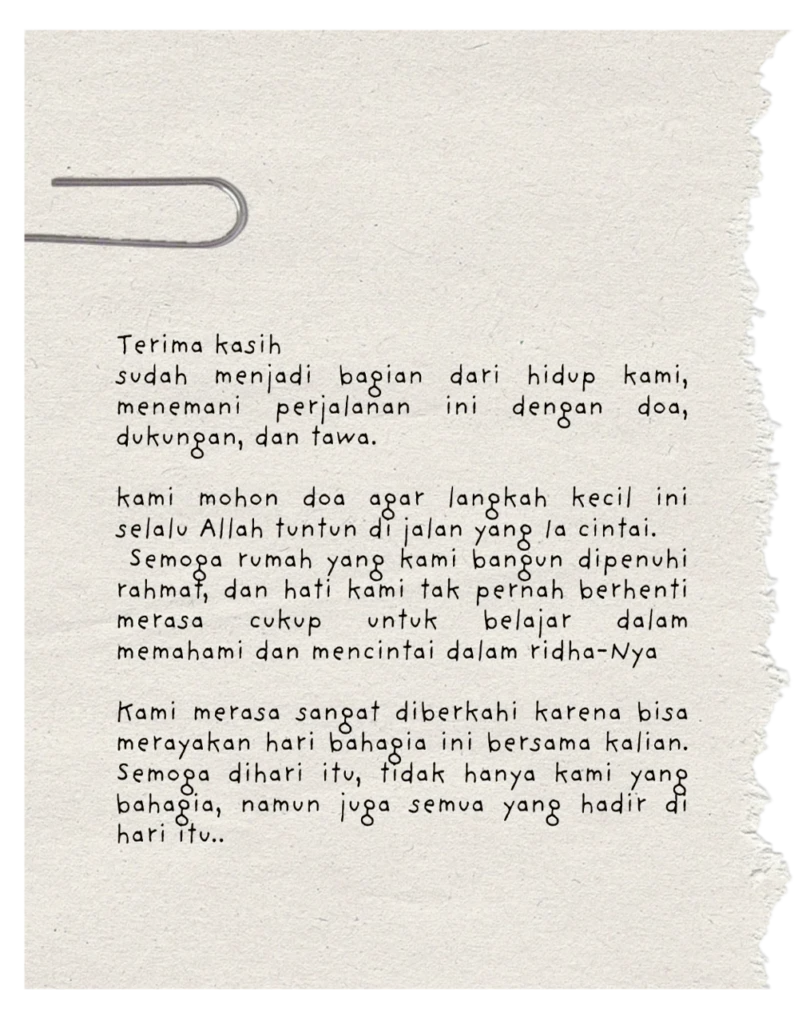 Terima kasih
sudah menjadi bagian dari hidup kami,
menemani perjalanan ini dengan doa,
dukungan, dan tawa.
kami mohon doa agar langkah kecil ini
selalu Allah tuntun di jalan yang Ia cintai.
Semoga rumah yang kami bangun dipenuhi
rahmat, dan hati kami tak pernah berhenti
merasa cukup untuk belajar dalam
memahami dan mencintai dalam ridha-Nya
Kami merasa sangat diberkahi karena bisa
merayakan hari bahagia ini bersama kalian.
Semoga dihari itu, tidak hanya kami yang
bahagia, namun juga semua yang hadir di
hari itu..